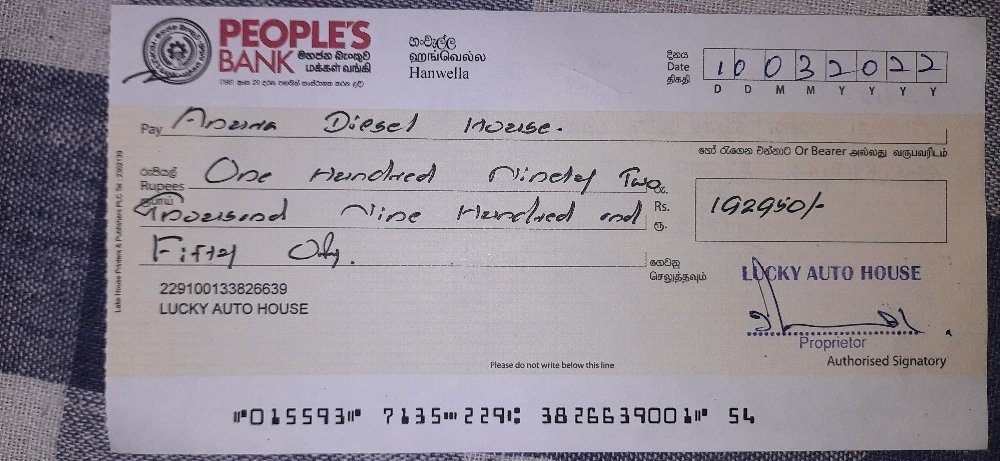 PEOPLE'S
BANK මහජන බැංකුව
மக்கள் வங்கி
හංවැල්ල
ஹங்வெல்ல
Hanwella
දිනය
Date
திகதி
10 03 2022
D D M M Y Y Y Y
Pay Diesel House.
හෝ රැගෙන එන්නාට Or Bearer அல்லது வருபவரிடம்
රුපියල්
Rupees One Hundred Ninety Two
ரூபாய்
Thousand Nine Hundred and
Fifty Only.
රු.
Rs. 192950/-
ரூ.
ගෙවනු
செலுத்தவும்
229100133826639
LUCKY AUTO HOUSE
LUCKY AUTO HOUSE
Proprietor
Authorised Signatory
Please do not write below this line
⑈015593⑈ 7135⑉229⑆ 3826639001⑈ 54
Lake House Printers & Publishers PLC